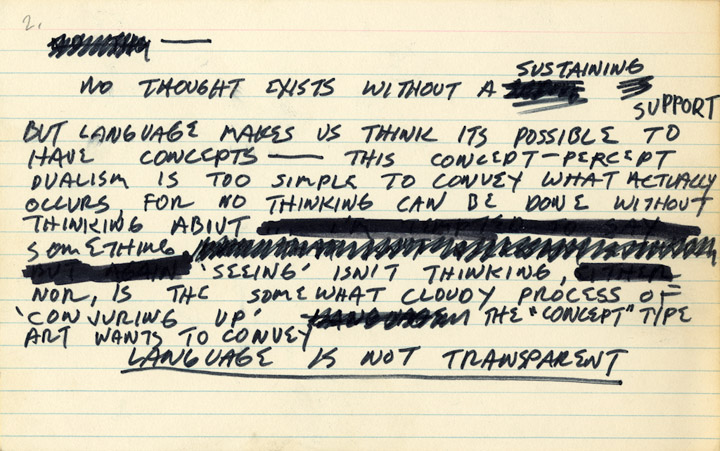 2.
—
SUSTAINING
NO THOUGHT EXISTS WITHOUT A
SUPPORT
BUT LANGUAGE MAKES US THINK ITS POSSIBLE TO
HAVE CONCEPTS — THIS CONCEPT-PERCEPT
DUALISM IS TOO SIMPLE TO CONVEY WHAT ACTUALLY
OCCURS, FOR NO THINKING CAN BE DONE WITHOUT
THINKING ABIUT
SOMETHING
'SEEING' ISN'T THINKING,
NOR, IS THE SOMEWHAT CLOUDY PROCESS OF
'CONJURING UP' THE "CONCEPT" TYPE
ART WANTS TO CONVEY
LANGUAGE IS NOT TRANSPARENT